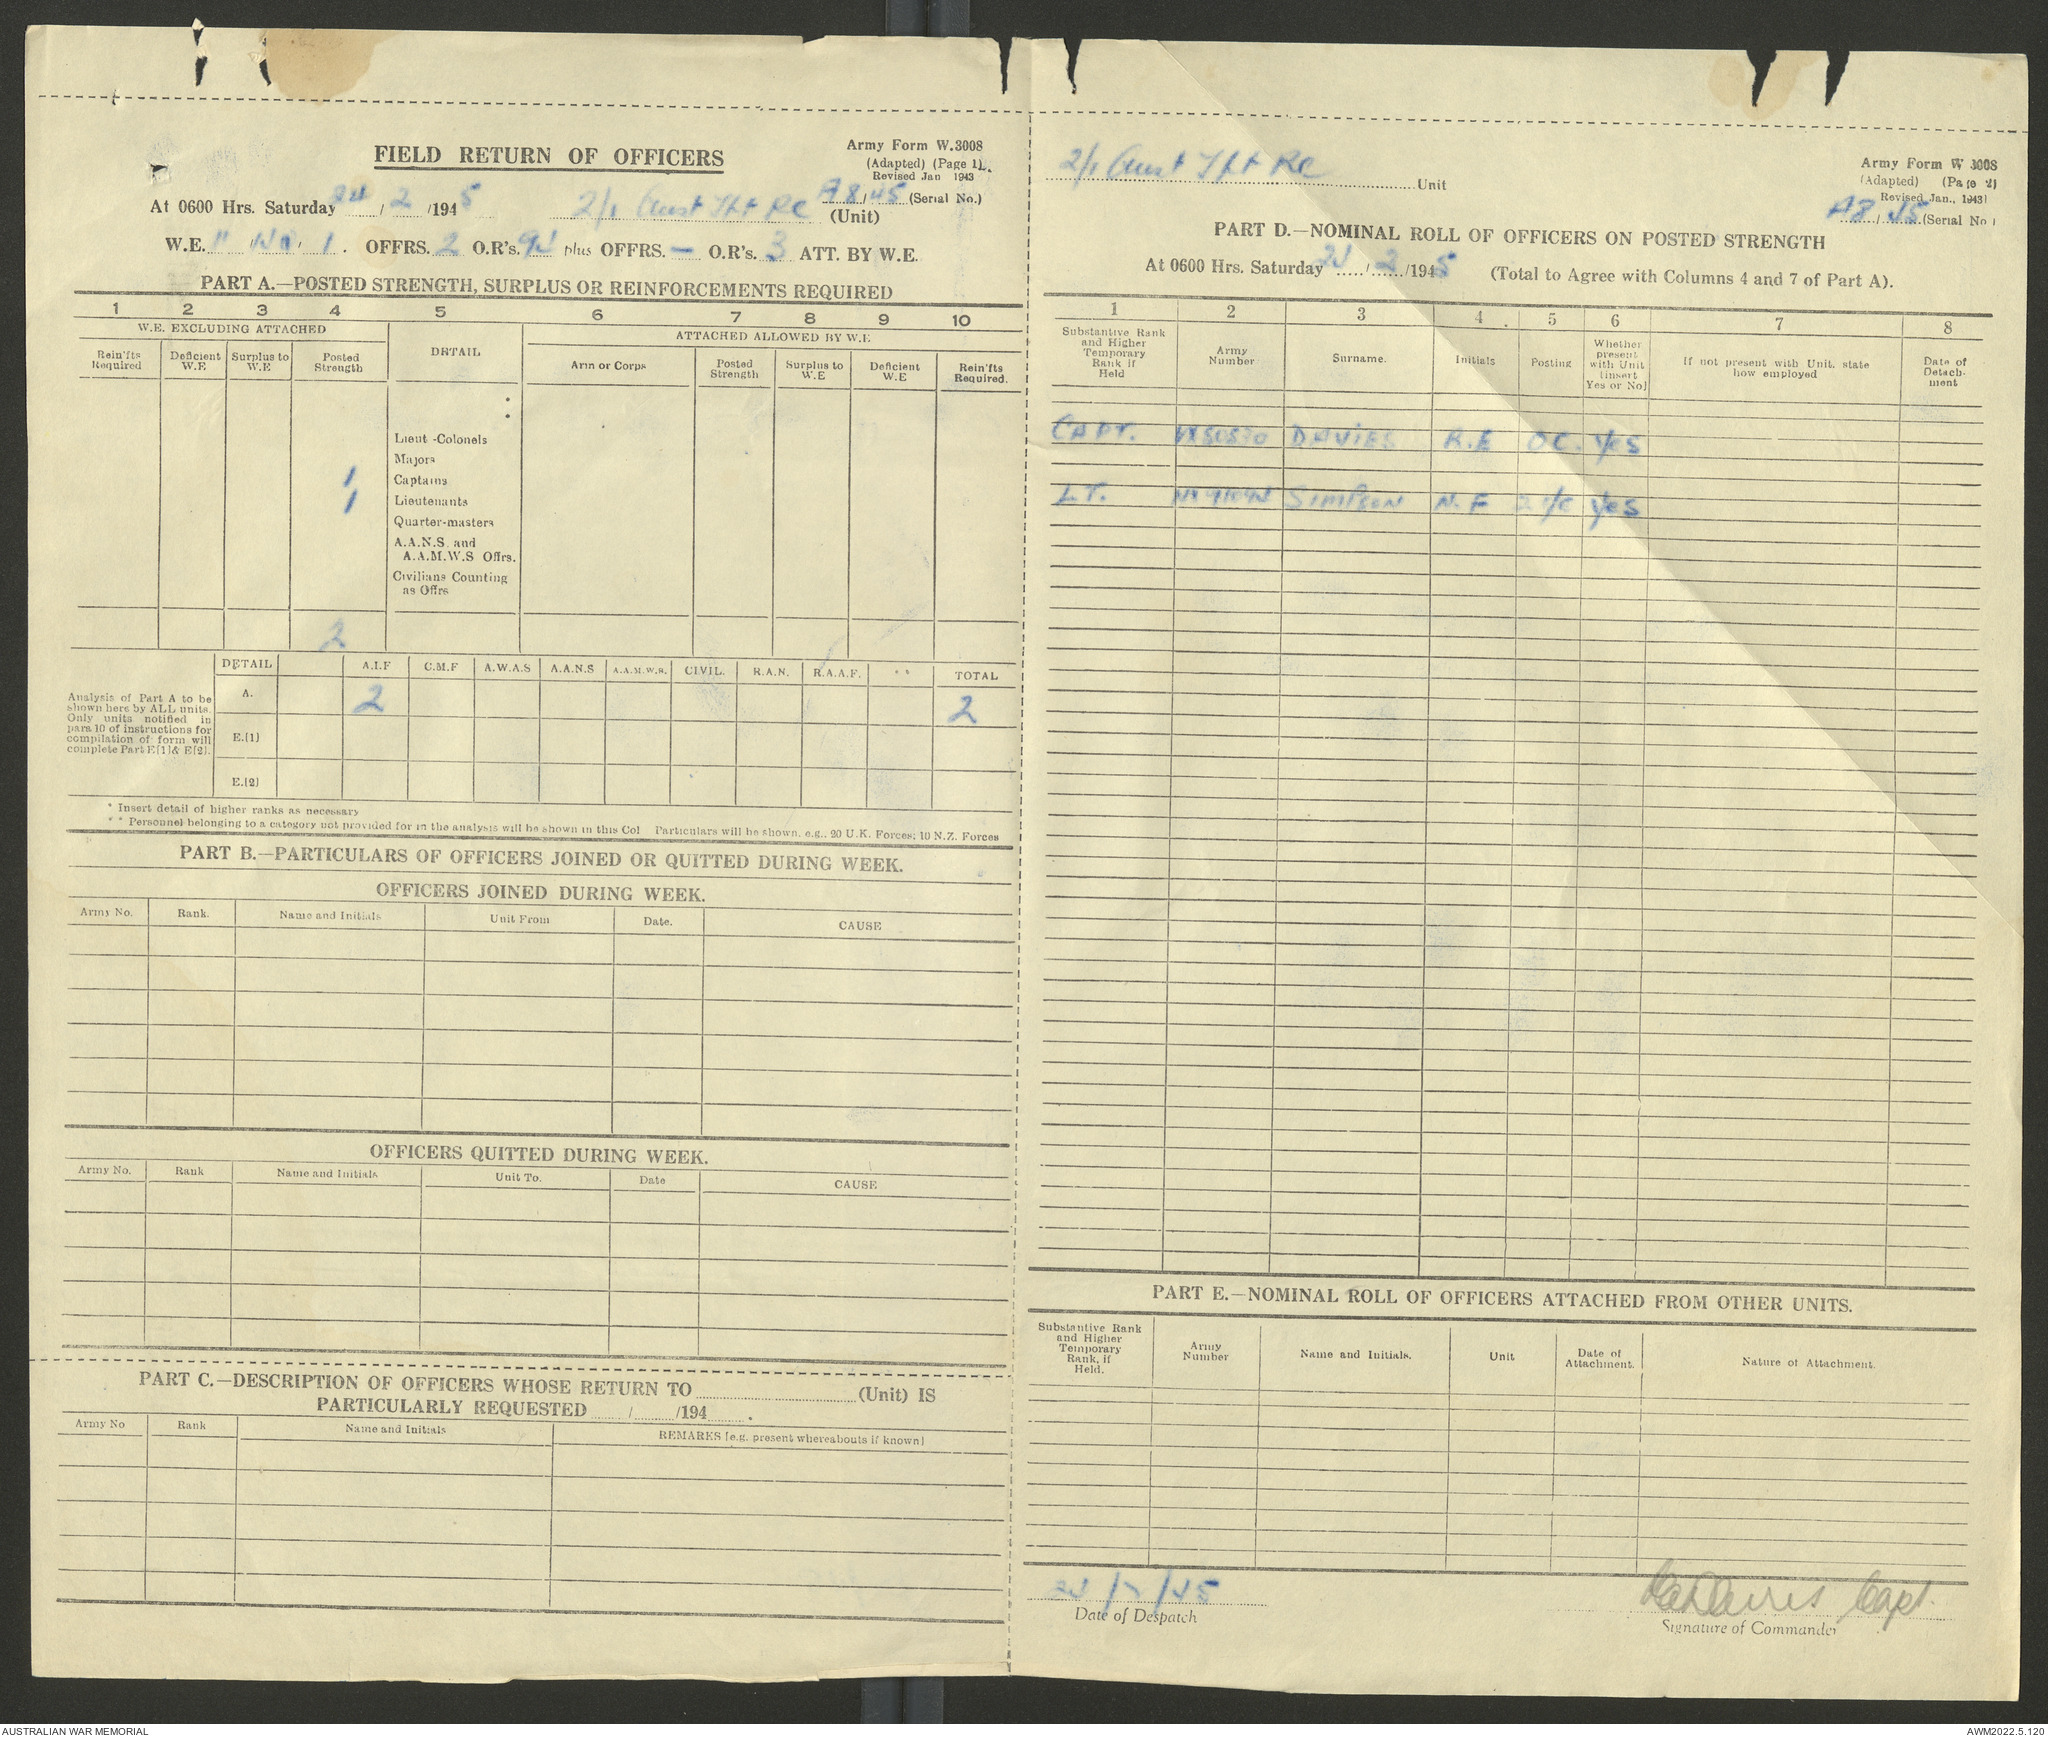 Army Form W.3008
FIELD RETURN OF OFFICERS
(Adapted) (Page 1).
Revised Jan 1943
At 0600 Hrs. Saturday 24/2/1945 2/1 Aust Tpt Pl A8/45 (Serial No.)
(Unit)
W.E. 11/ / 1. OFFRS. 2 O.R's. 94 plus OFFRS. — O.R's. 3 ATT. BY W.E.
PART A.—POSTED STRENGTH, SURPLUS OR REINFORCEMENTS REQUIRED
1 2 3 4 5 6 7 8 9 10
W.E. EXCLUDING ATTACHED DETAIL ATTACHED ALLOWED BY W.E
Rein'fts Required Deficient W.E Surplus to W.E Posted Strength Arm or Corps Posted Strength Surplus to W.E Deficient W.E Rein'fts Required.
*
*
Lieut -Colonels
Majors
1 Captains
1 Lieutenants
Quarter-masters
A.A.N.S. and
A.A.M.W.S Offrs.
Civilians Counting
as Offrs
2
DETAIL A.I.F C.M.F A.W.A.S A.A.N.S A.A.M.W.S. CIVIL. R.A.N. R.A.A.F. * * TOTAL
A. 2 2
E.(1)
E.(2)
Analysis of Part A to be
shown here by ALL units.
Only units notified in
para 10 of instructions for
compilation of form will
complete Part E[1] & E[2].
* Insert detail of higher ranks as necessary
* * Personnel belonging to a category not provided for in the analysis will be shown in this Col Particulars will be shown, e.g., 20 U.K. Forces; 10 N.Z. Forces
PART B.—PARTICULARS OF OFFICERS JOINED OR QUITTED DURING WEEK.
OFFICERS JOINED DURING WEEK.
Army No. Rank. Name and Initials Unit From Date. CAUSE
OFFICERS QUITTED DURING WEEK.
Army No. Rank Name and Initials Unit To. Date CAUSE
PART C.—DESCRIPTION OF OFFICERS WHOSE RETURN TO (Unit) IS
PARTICULARLY REQUESTED / /194 .
Army No Rank Name and Initials REMARKS [e.g. present whereabouts if known]
2/1 Aust Tpt Pl Unit
Army Form W 3008
(Adapted) (Page 2)
Revised Jan., 1943
A8/45 (Serial No)
PART D.—NOMINAL ROLL OF OFFICERS ON POSTED STRENGTH
At 0600 Hrs. Saturday 24/2/1945 (Total to Agree with Columns 4 and 7 of Part A).
1 2 3 4 5 6 7 8
Substantive Rank and Higher Temporary Rank if Held Army Number Surname. Initials Posting Whether present with Unit (insert Yes or No) If not present with Unit, state how employed Date of Detach-ment
CAPT. DAVIES R.E OC. YES
LT. SIMPSON N.F 2 i/c YES
PART E.—NOMINAL ROLL OF OFFICERS ATTACHED FROM OTHER UNITS.
Substantive Rank and Higher Temporary Rank, if Held. Army Number Name and Initials. Unit Date of Attachment. Nature of Attachment.
24/2/45
Date of Despatch
Davies Capt.
Signature of Commander
AUSTRALIAN WAR MEMORIAL
AWM2022.5.120